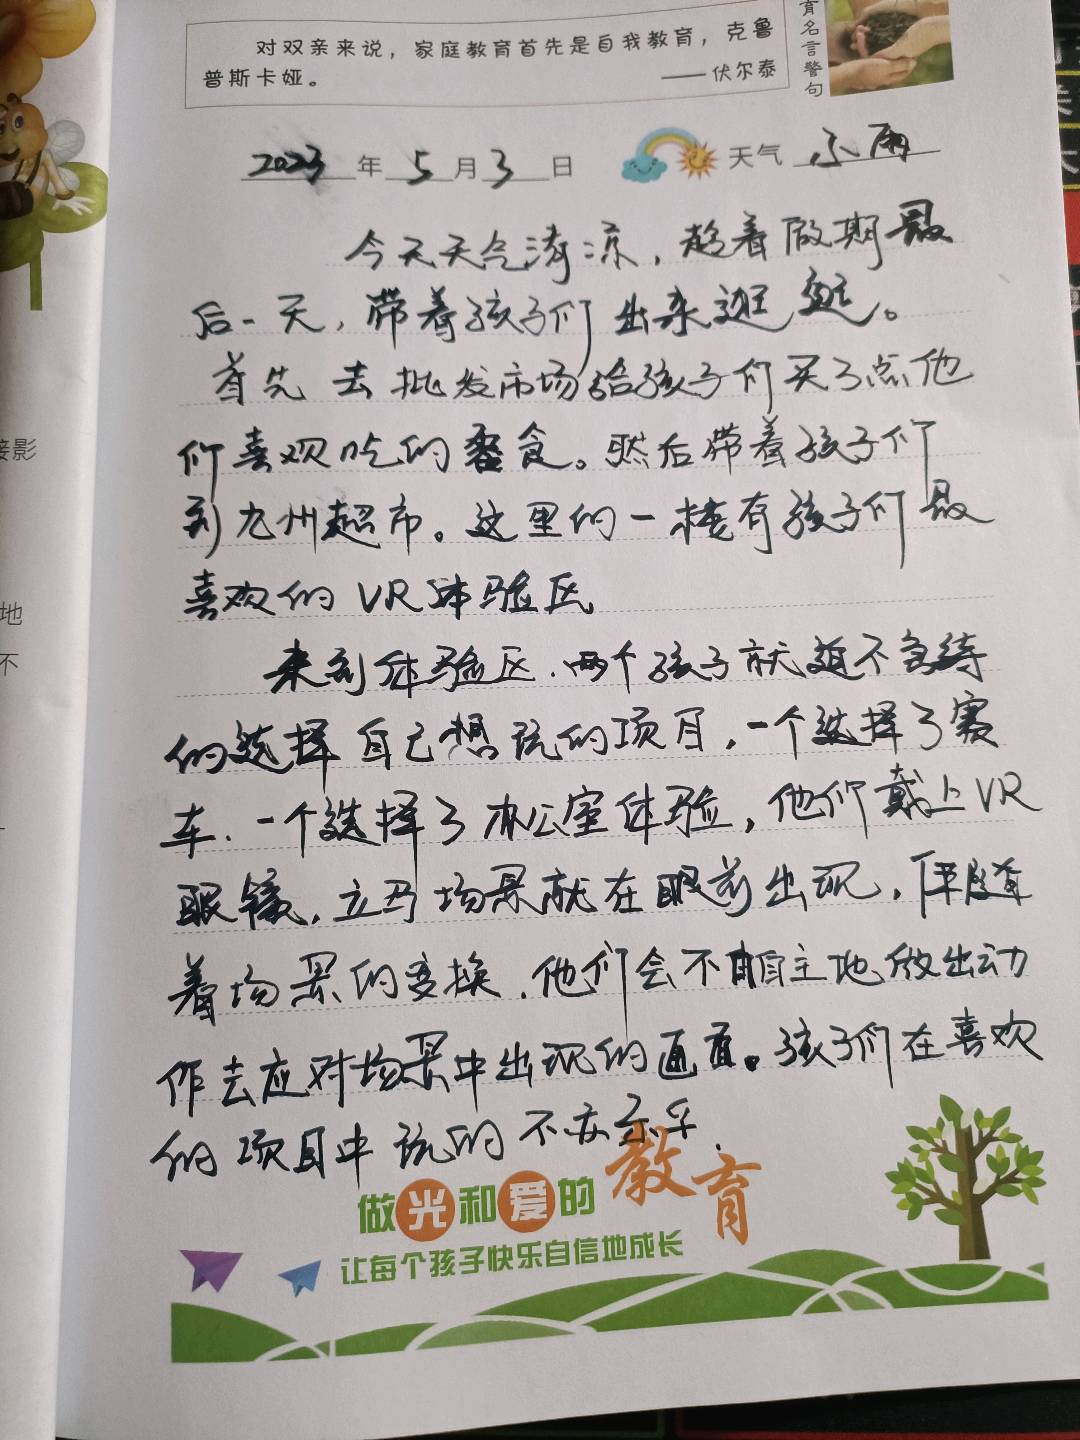 对双亲来说，家庭教育首先是自我教育，克鲁
普斯卡娅。
——伏尔泰
育名言警句
2023年5月3日 天气 小雨
今天天气清凉，趁着假期最
后一天，带着孩子们出来逛逛。
首先去批发市场给孩子们买了点他
们喜欢吃的零食。然后带着孩子们
到九州超市。这里的一楼有孩子们最
喜欢的VR体验区
来到体验区.两个孩子就迫不急待
的选择自己想玩的项目，一个选择了赛
车.一个选择了办公室体验，他们戴上VR
眼镜，立马场景就在眼前出现，伴随
着场景的变换.他们会不由自主地做出动
作去应对场景中出现的画面。孩子们在喜欢
的项目中玩的不亦乐乎.
做光和爱的教育
让每个孩子快乐自信地成长
接影
地
不